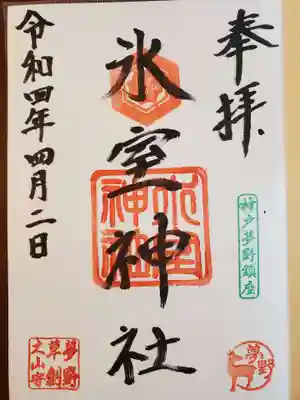 奉拝
氷室神社
令和四年四月二日
氷室神社
神戸夢野鎮座
夢野
夢野
草創
之山守